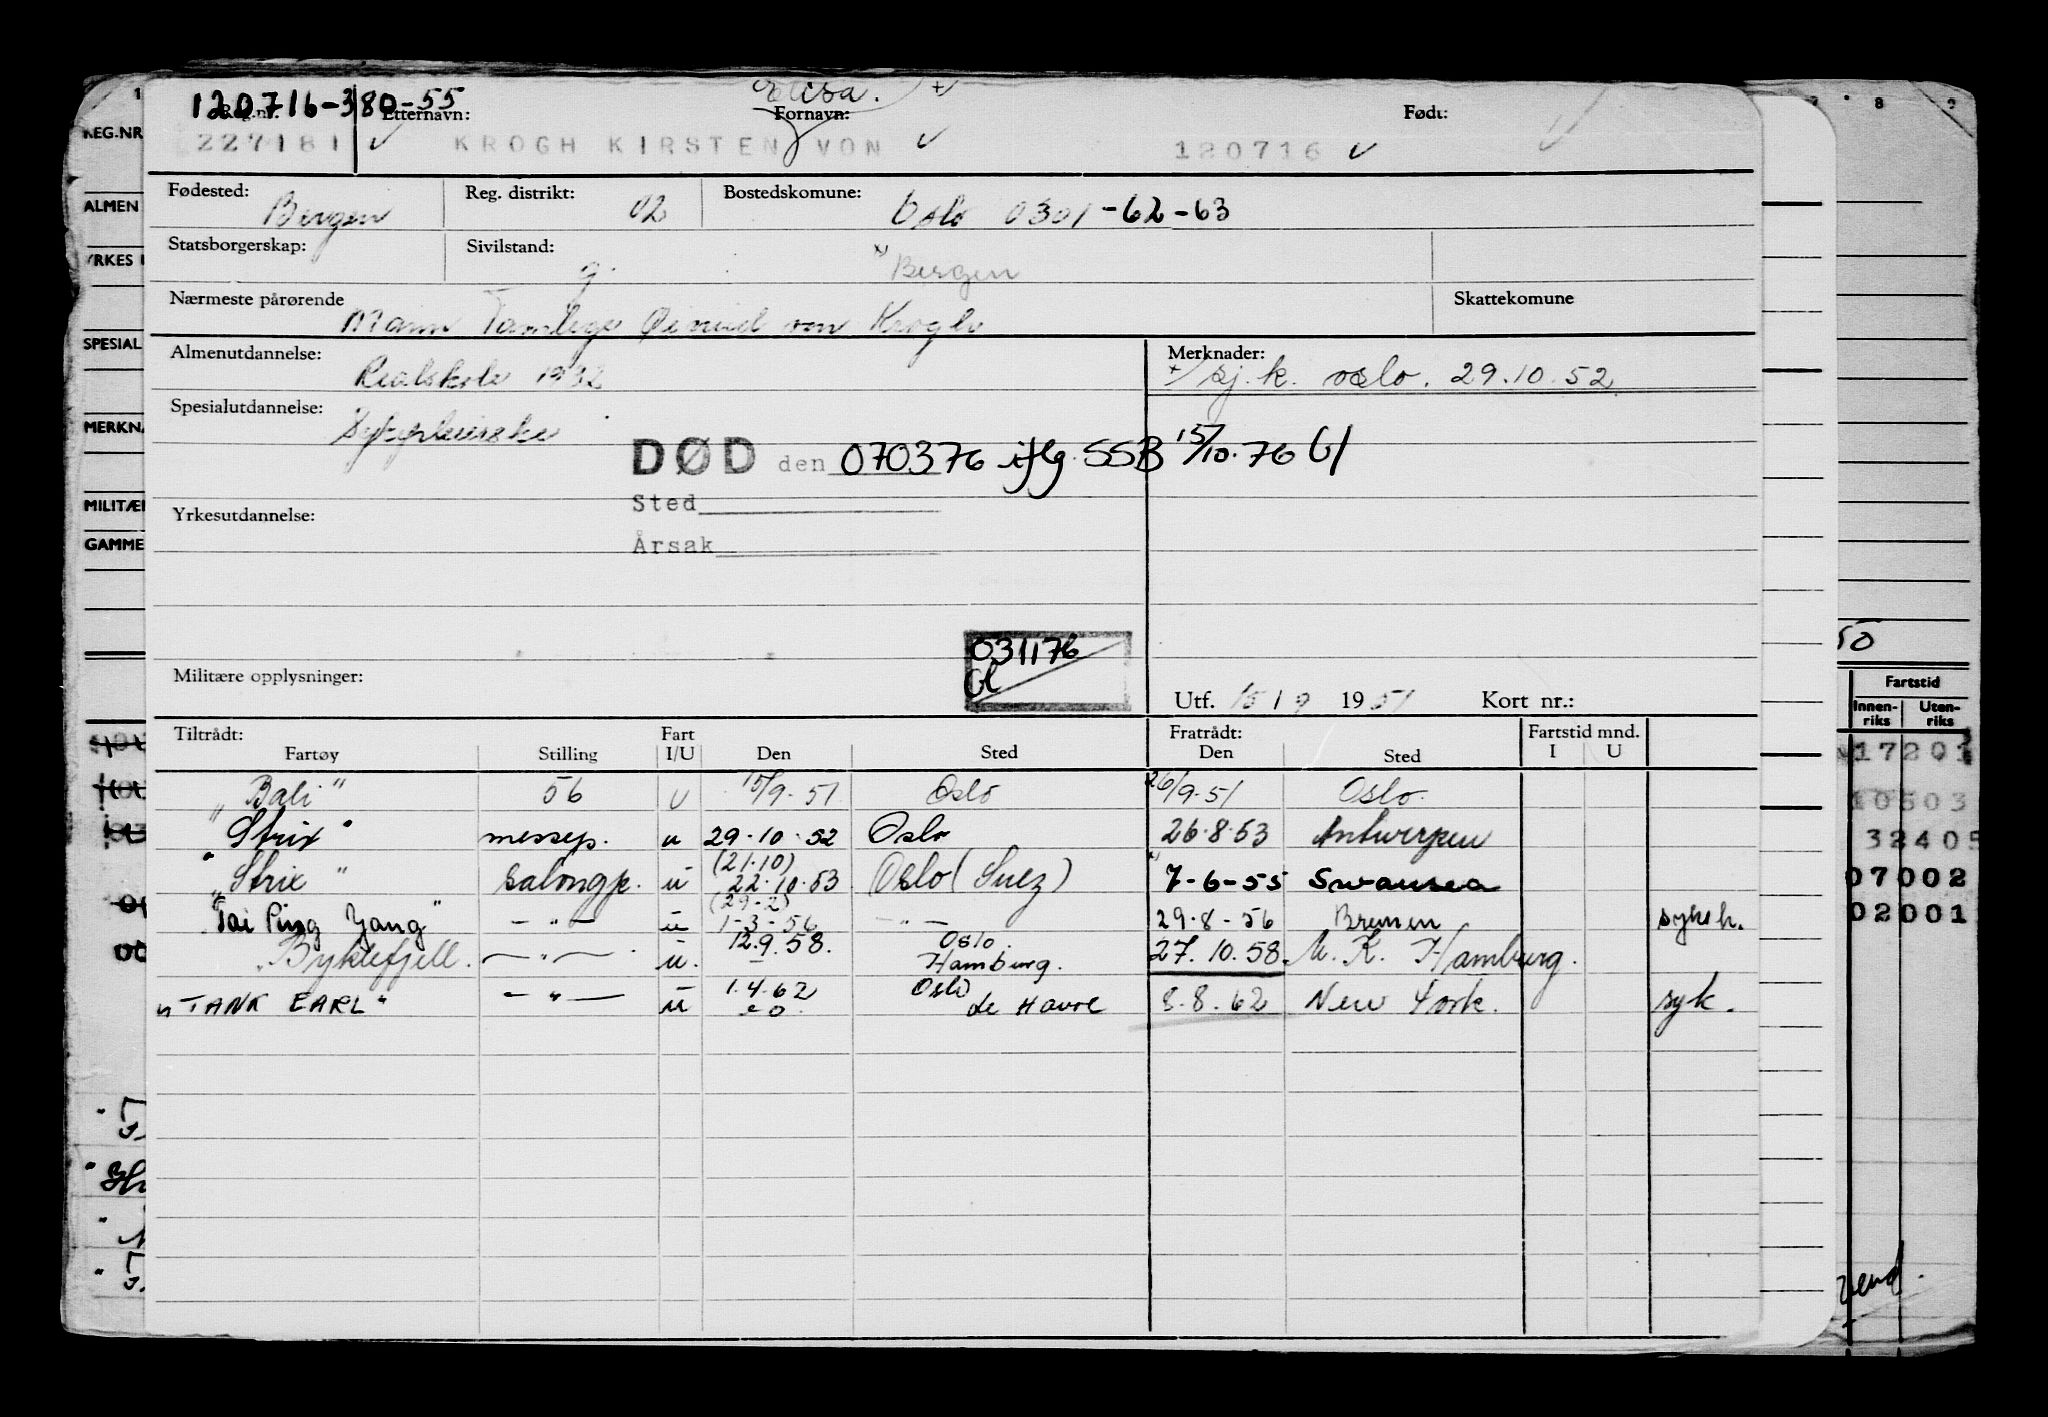 120716-380-55 Elisa. +
Reg.nr. Etternavn: Fornavn: Født:
227181 KROGH KIRSTEN VON 120716
Fødested: Bergen Reg. distrikt: 02 Bostedskomune: Oslo 0301-62-63
Statsborgerskap: Sivilstand: g. x) Bergen
Nærmeste pårørende Mann von Krogh Skattekomune
Almenutdannelse: Realskole 1932 Merknader: +/ sj. k. oslo. 29.10.52
Spesialutdannelse: Sykepleierske
DØD den 070376 iflg. SSB 15/10.76
Sted
Yrkesutdannelse:
Årsak
031176
Militære opplysninger:
Utf. 15/9 1951 Kort nr.:
Tiltrådt: Fart Fratrådt: Fartstid mnd.
Fartøy Stilling I/U Den Sted Den Sted I U
"Bali" 56 U 15/9.51 Oslo 26/9.51 Oslo.
"Strix" messep. u 29.10.52 Oslo 26.8.53 Antwerpen
"Strix" salongp. u (21.10) 22.10.53 Oslo (Suez) x) 7-6-55 Swansea
"Tai Ping Yang" -"- u (29-2) 1-3-56 -"- 29.8-56 Bremen sykeh.
"Byklefjell. -"- u. 12.9.58. Oslo. Hamburg. 27.10.58. M. K. Hamburg.
"TANK EARL" -"- u 1.4.62 Oslo Le Havre 8.8.62 New York. syk.
REG.NR
ALMEN
YRKES
SPESIAL
MERKNA
MILITÆR
GAMME
8
50
Fartstid
Innen-riks Uten-riks
17201
10503
32405
07002
02001
vend.